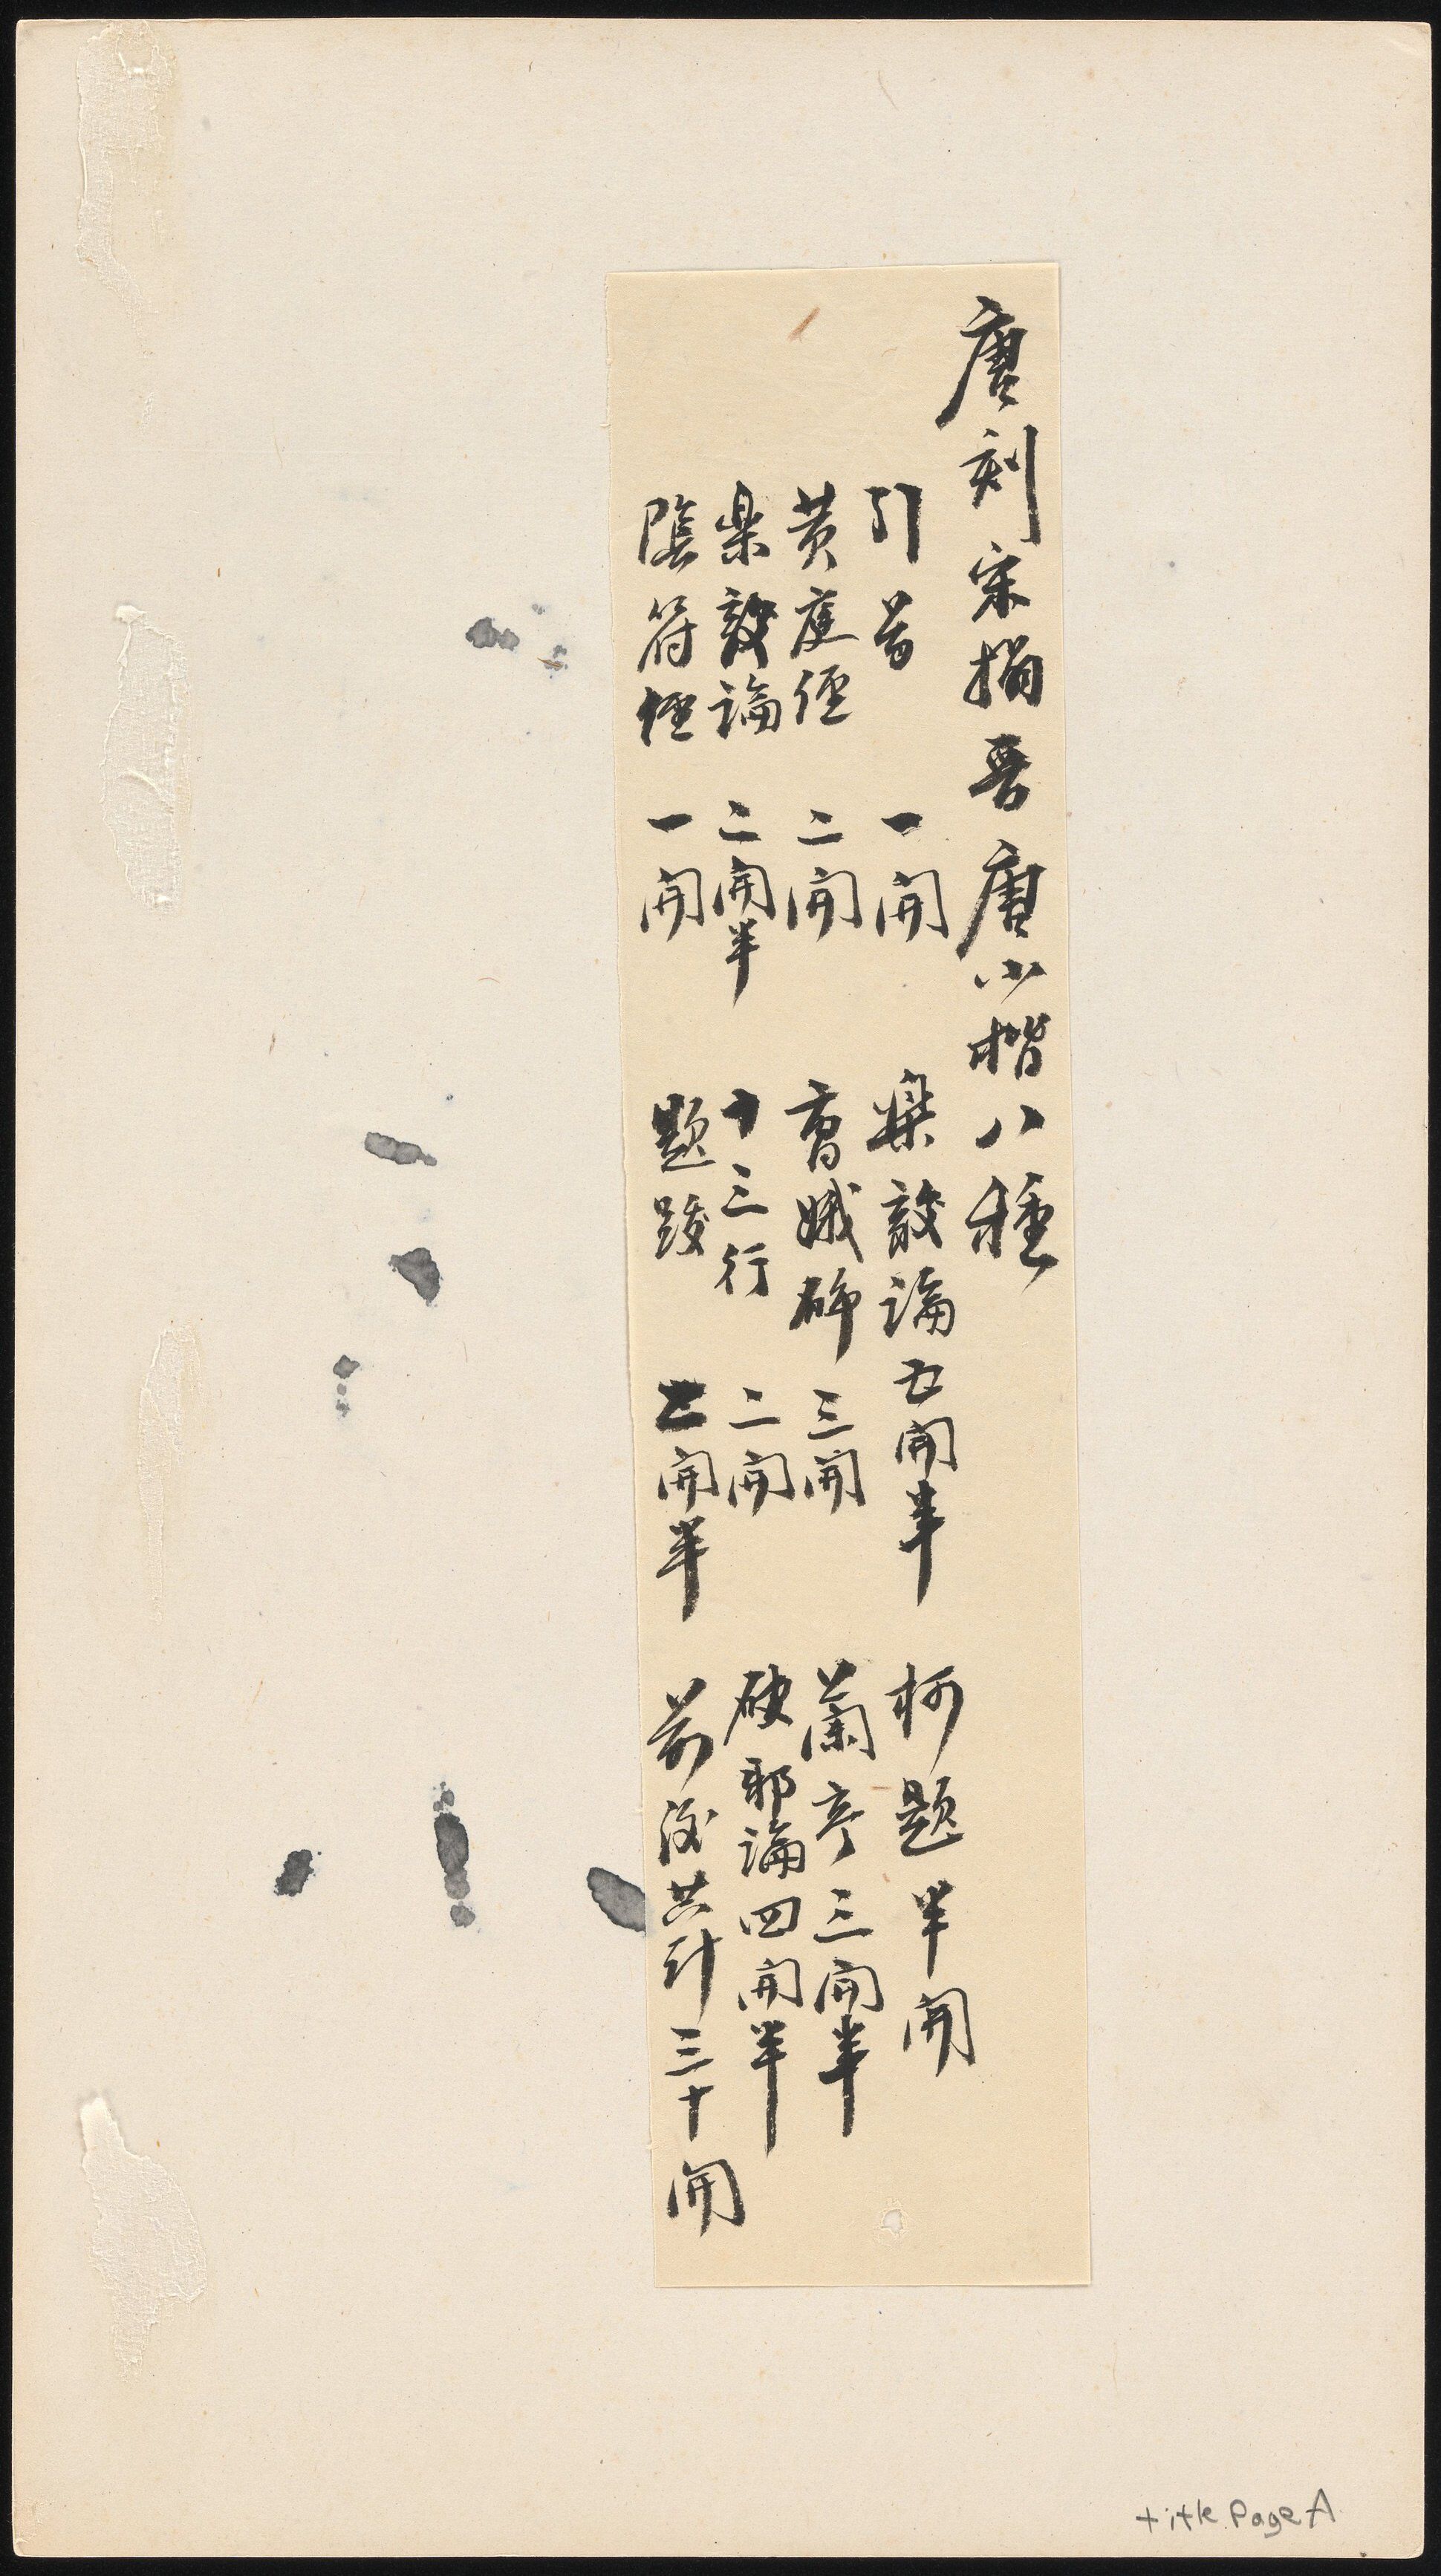 唐刻宋搨晉唐小楷八種
引首 一開 樂毅論 五開半 柯題半開
黄庭經 二開 曹娥碑 三開 蘭亭三開半
樂毅論 二開半 十三行 二開 破邪論四開半
陰符經 一開 題跋 開半 前後共計三十開
title Page A